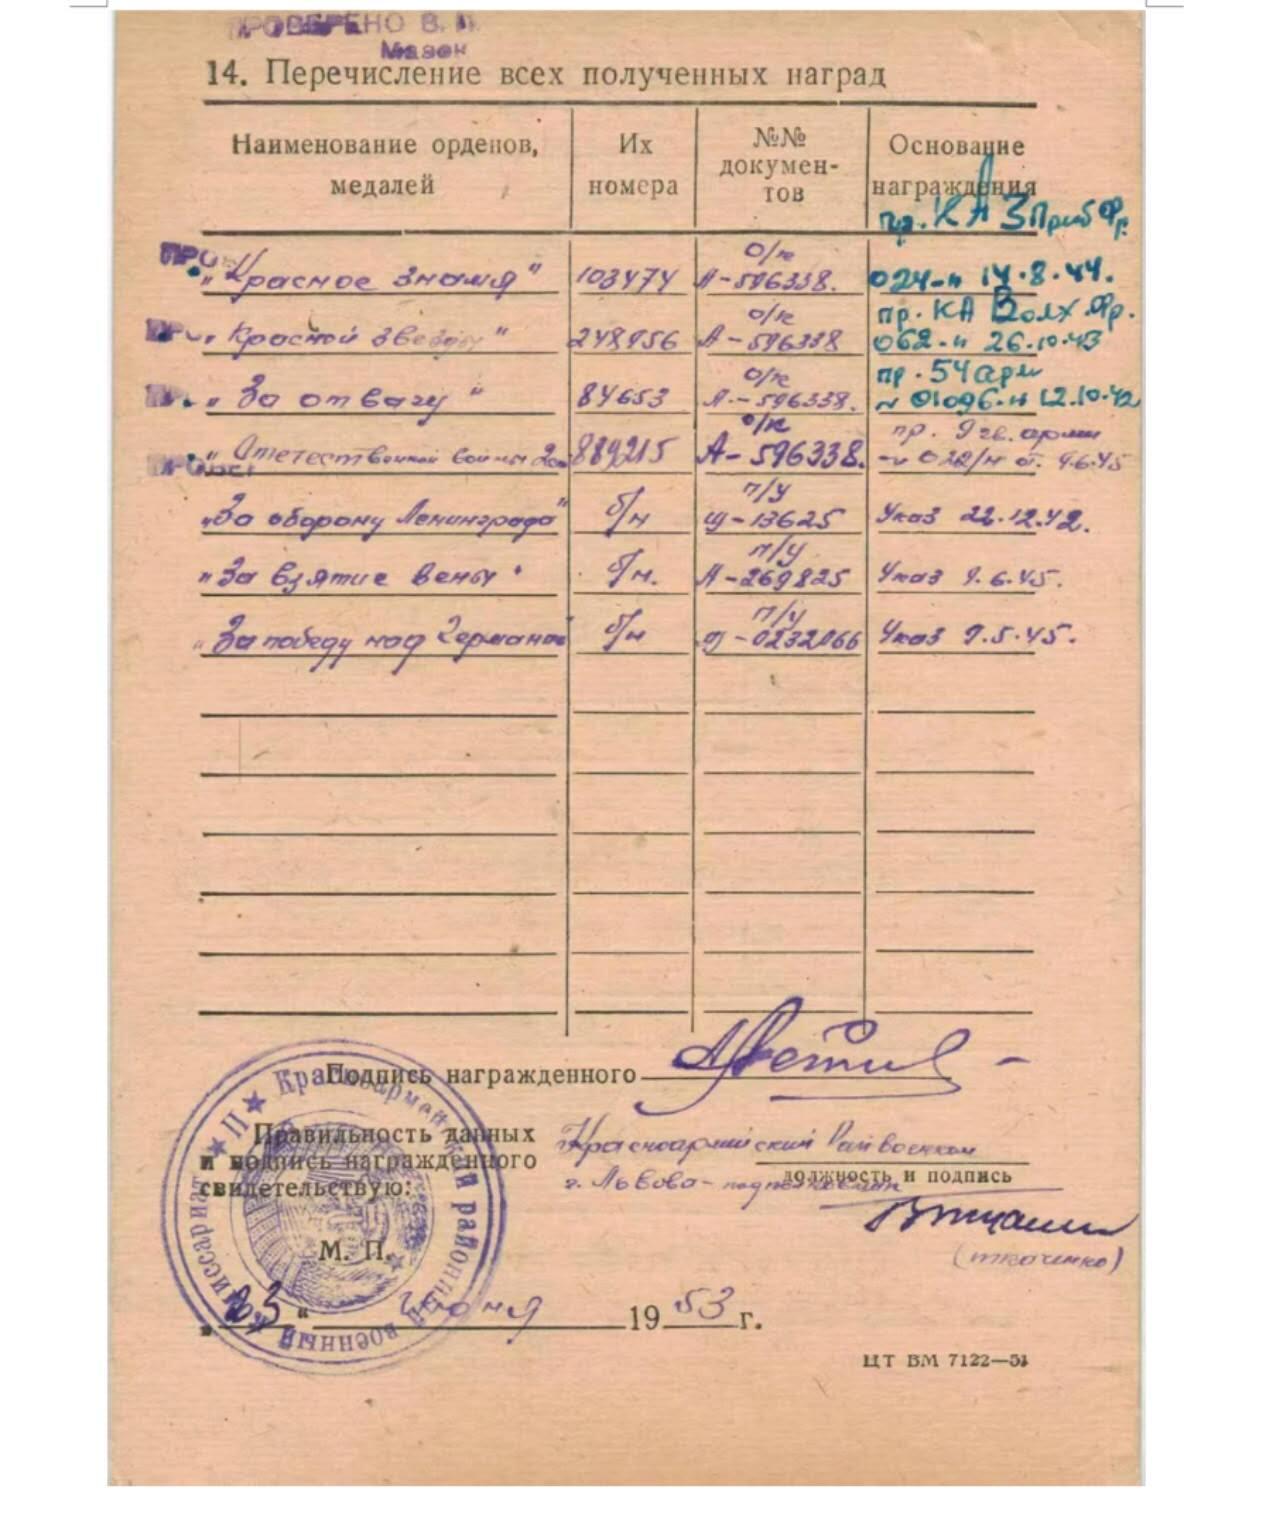 ПРОВЕРЕНО В. П.
14. Перечисление всех полученных наград
Наименование орденов, медалей
Их номера
№№ документов
Основание награждения
пр. КА 3 Приб Фр.
ПРО
о/к
"Красное Знамя" 103474 А-596338. 024-н 14.8.44.
о/к пр. КА Волх. Фр.
"Красной звезды" 248956 А-596338 062-н 26.10.43
о/к пр. 54 арм
"За отвагу" 84653 А-596338. № 01096-н 12.10.42
о/к пр. 9 гв. армии
"Отечественной войны 889215 А-596338. № 022/н от. 9.6.45
п/у
"За оборону Ленинграда" б/н Щ-13625 Указ 22.12.42.
п/у
"За взятие Вены" б/н. А-269825 Указ 9.6.45.
п/у
"За победу над Германией" б/н 0232066 Указ 9.5.45.
Подпись награжденного
Правильность данных и подпись награжденного свидетельствую:
Красноармейский Райвоенком
г. Львова - подполковник
должность и подпись
(Ткаченко)
М. П.
Красноармейский районный военный комиссариат
"23" июня 1953 г.
ЦТ ВМ 7122—51